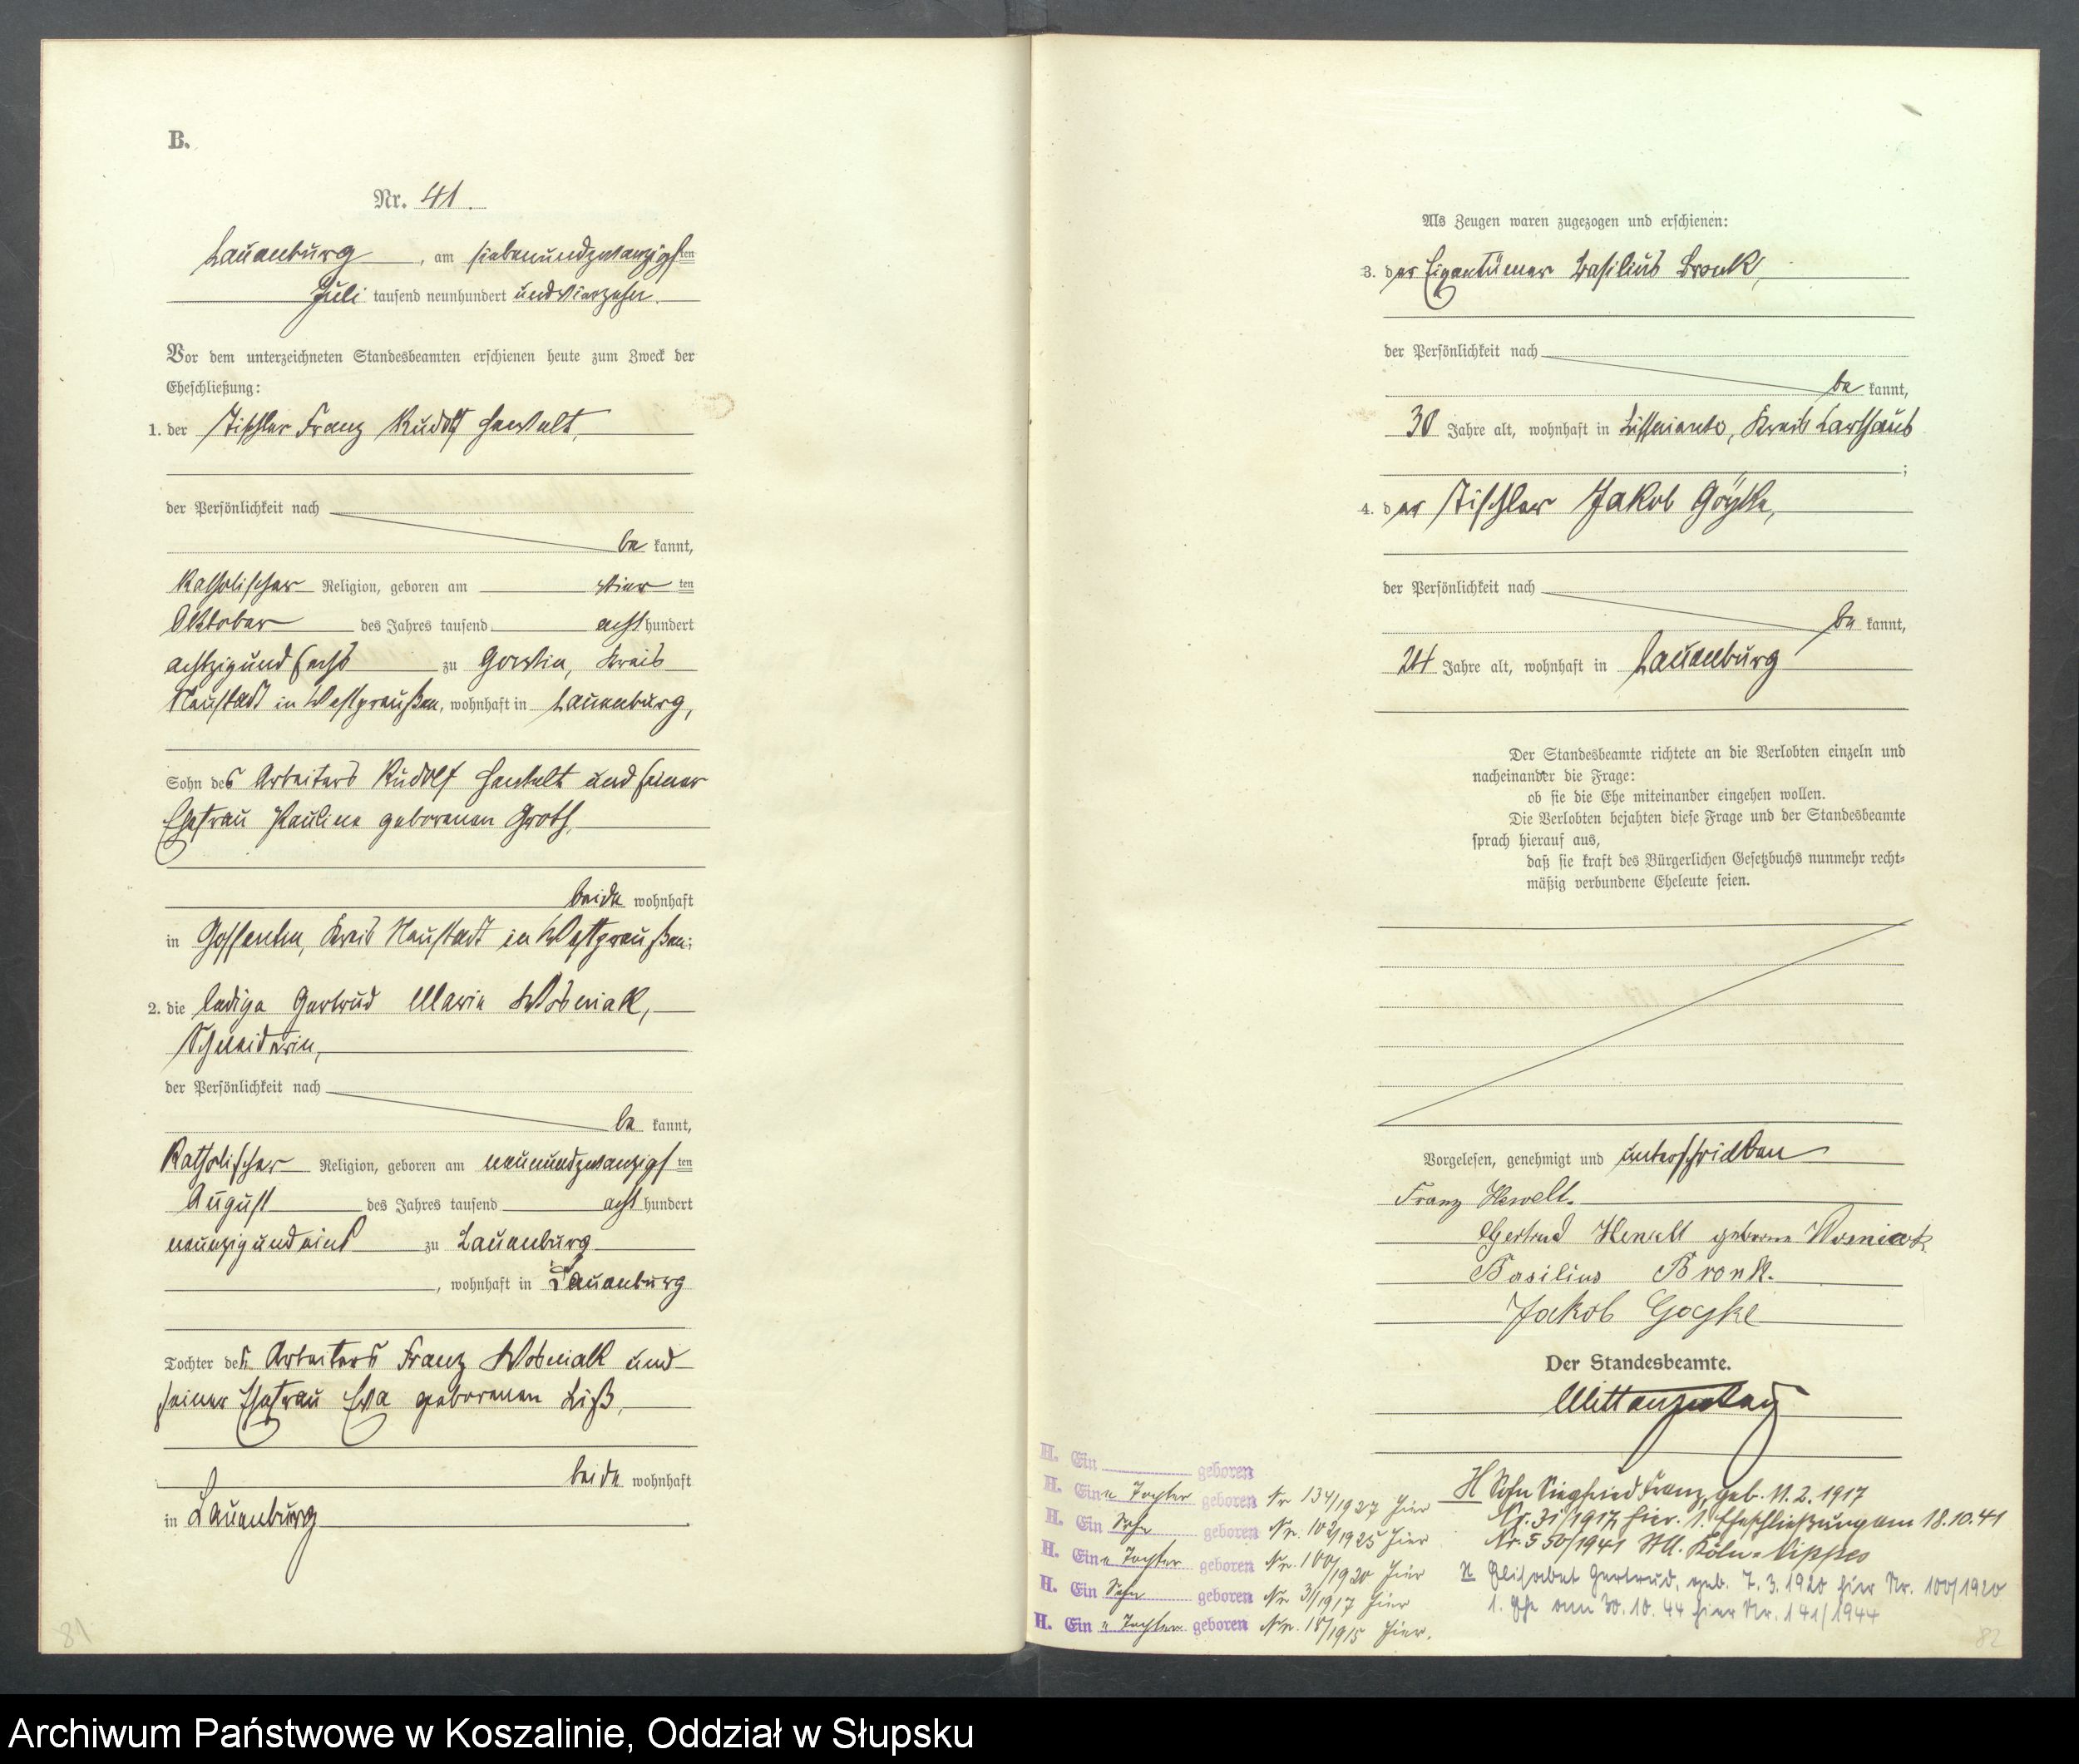 B.
Nr. 41.
Lauenburg, am siebenundzwanzigsten
Juli tausend neunhundert undvierzehn.
Vor dem unterzeichneten Standesbeamten erschienen heute zum Zweck der
Eheschließung:
1. der Tischler Franz Rudolf Hewelt,
der Persönlichkeit nach
be kannt,
katholischer Religion, geboren am vier ten
Oktober des Jahres tausend acht hundert
achtzigundsechs zu Gowin, Kreis
Neustadt in Westpreußen, wohnhaft in Lauenburg,
Sohn des Arbeiters Rudolf Hewelt und seiner
Ehefrau Pauline geborenen Groth,
beide wohnhaft
in Gossentin, Kreis Neustadt in Westpreußen;
2. die ledige Gertrud Maria Wosniak,
Schneiderin,
der Persönlichkeit nach
be kannt,
katholischer Religion, geboren am neunundzwanzigsten
August des Jahres tausend acht hundert
neunzigundeins zu Lauenburg
, wohnhaft in Lauenburg
Tochter des Arbeiters Franz Wosniak und
seiner Ehefrau Eva geborenen Liß,
beide wohnhaft
in Lauenburg
81
Als Zeugen waren zugezogen und erschienen:
3. der Eigentümer Basilius Bronk,
der Persönlichkeit nach
be kannt,
30 Jahre alt, wohnhaft in Kreis Carthaus
;
4. der Tischler Jakob Goyke,
der Persönlichkeit nach
be kannt,
24 Jahre alt, wohnhaft in Lauenburg
Der Standesbeamte richtete an die Verlobten einzeln und
nacheinander die Frage:
ob sie die Ehe miteinander eingehen wollen.
Die Verlobten bejahten diese Frage und der Standesbeamte
sprach hierauf aus,
daß sie kraft des Bürgerlichen Gesetzbuchs nunmehr recht=
mäßig verbundene Eheleute seien.
Vorgelesen, genehmigt und unterschrieben
Franz Hewelt.
Gertrud Hewelt geborene Wosniak
Basilius Bronk.
Jakob Goyke
Der Standesbeamte.
H. Ein geboren
H. Eine Tochter geboren Nr 134/1927 hier
H. Ein Sohn geboren Nr. 102/1925 hier
H. Eine Tochter geboren Nr. 100/1920 hier
H. Ein Sohn geboren Nr 31/1917 hier
H. Eine Tochter geboren Nr. 18/1915 hier.
H Sohn Siegfried Franz, geb. 11.2.1917
Nr. 31/1917 hier. 1. Eheschließung am 18.10.41
Nr. 550/1941 StA. Köln=Nippes
H Elisabet Gertrud, geb. 7.3.1920 hier Nr. 100/1920
1. Ehe am 30.10.44 hier Nr. 141/1944
82
Archiwum Państwowe w Koszalinie, Oddział w Słupsku